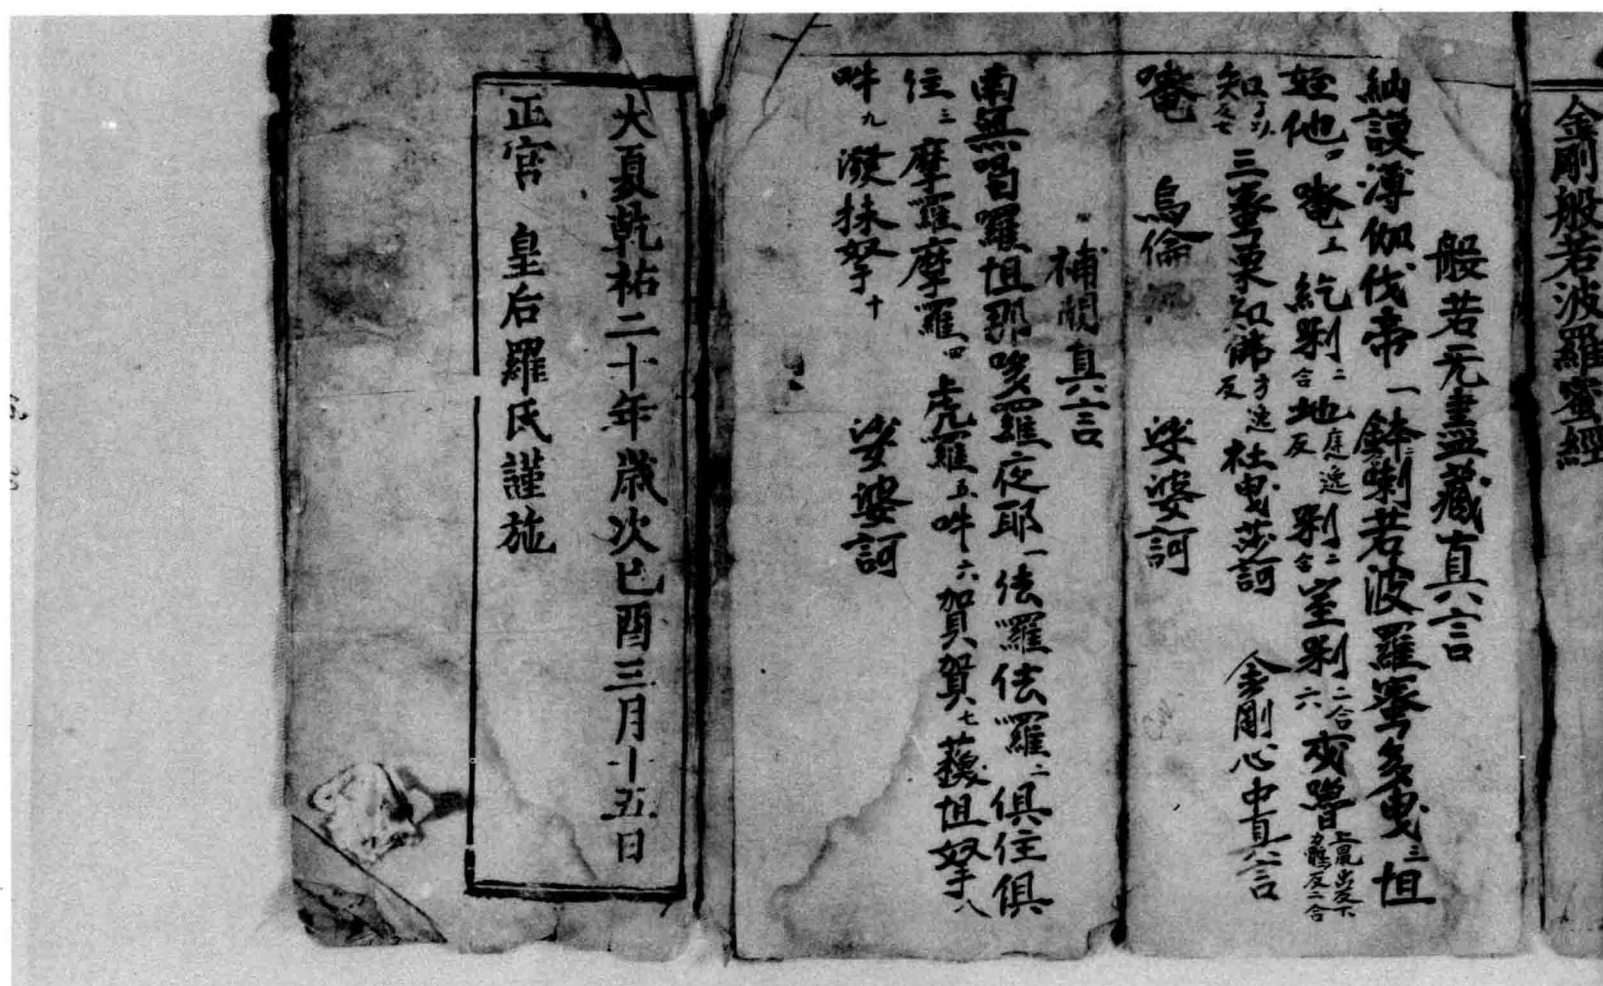 金剛般若波羅蜜經
般若无盡藏真言
納謨薄伽伐帝一鉢二喇若波羅蜜多曳三怛
姪他四唵五紇剠二合地庭逸反剠二合室剠二合六
知三蜜栗知佛方逸反社曳莎訶 金剛心中真言
唵 烏倫 娑婆訶
補闕真言
南無喝囉怛那哆羅夜耶一佉羅佉羅二俱住俱
住三摩羅摩羅四虎羅五吽六賀賀七蘇怛拏八
吽九潑抹拏十 娑婆訶
大夏乾祐二十年歲次己酉三月十五日
正宮 皇后羅氏謹施